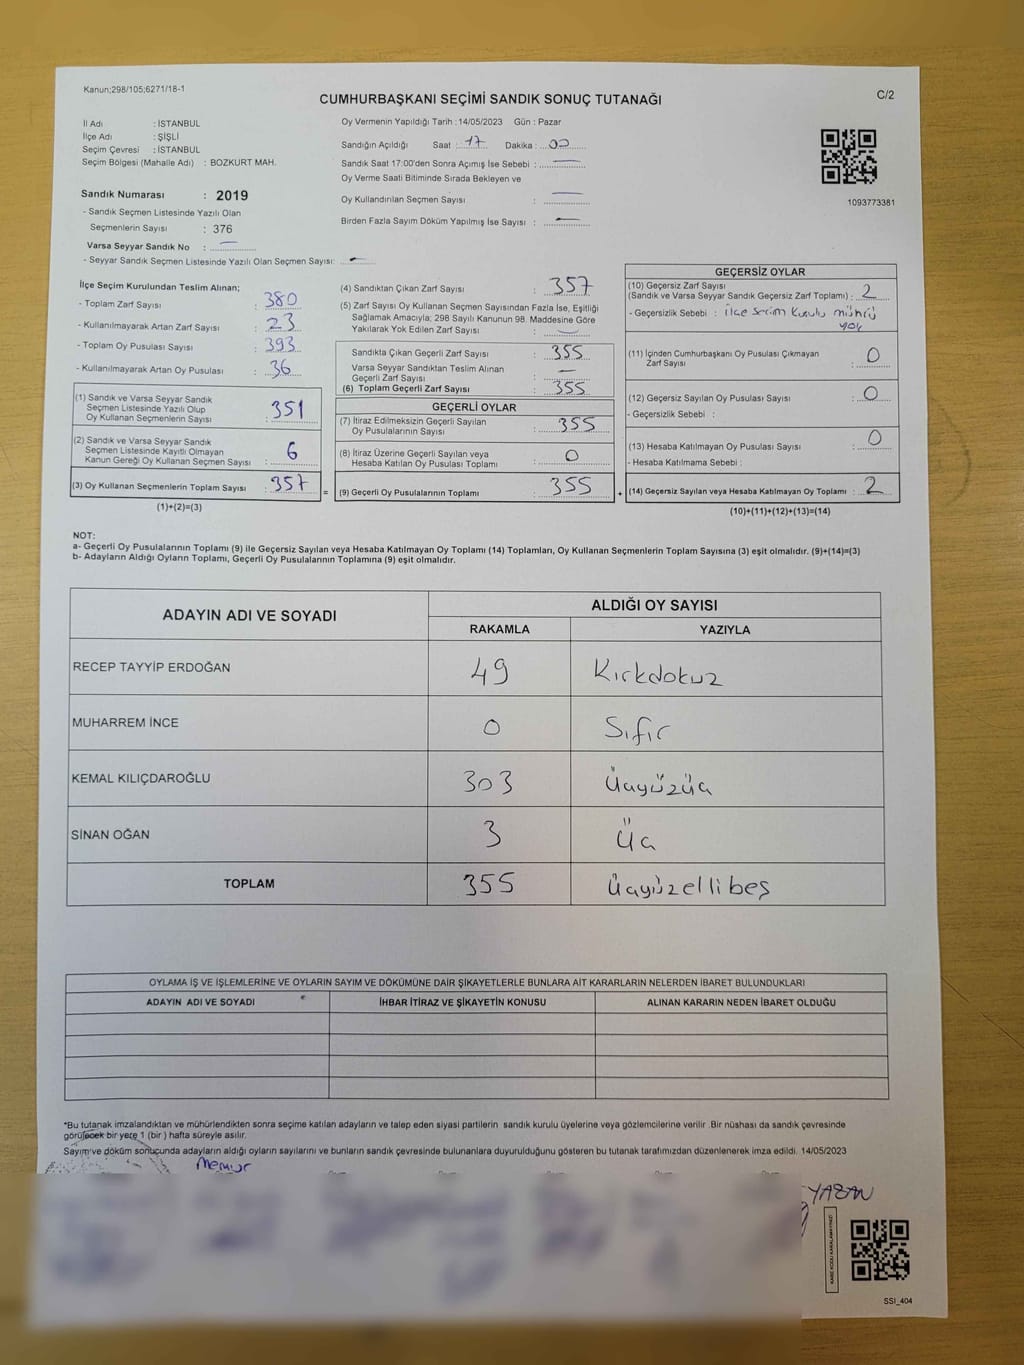 Kanun;298/105;6271/18-1
C/2
CUMHURBAŞKANI SEÇİMİ SANDIK SONUÇ TUTANAĞI
İl Adı : İSTANBUL
İlçe Adı : ŞİŞLİ
Seçim Çevresi : İSTANBUL
Seçim Bölgesi (Mahalle Adı) : BOZKURT MAH.
Sandık Numarası : 2019
- Sandık Seçmen Listesinde Yazılı Olan
Seçmenlerin Sayısı : 376
Varsa Seyyar Sandık No : —
- Seyyar Sandık Seçmen Listesinde Yazılı Olan Seçmen Sayısı: —
Oy Vermenin Yapıldığı Tarih : 14/05/2023 Gün : Pazar
Sandığın Açıldığı Saat : 17 Dakika : 00
Sandık Saat 17:00'den Sonra Açımış İse Sebebi : —
Oy Verme Saati Bitiminde Sırada Bekleyen ve
Oy Kullandırılan Seçmen Sayısı : —
Birden Fazla Sayım Döküm Yapılmış İse Sayısı : —
1093773381
İlçe Seçim Kurulundan Teslim Alınan;
- Toplam Zarf Sayısı : 380
- Kullanılmayarak Artan Zarf Sayısı : 23
- Toplam Oy Pusulası Sayısı : 393
- Kullanılmayarak Artan Oy Pusulası : 36
(1) Sandık ve Varsa Seyyar Sandık
Seçmen Listesinde Yazılı Olup
Oy Kullanan Seçmenlerin Sayısı : 351
(2) Sandık ve Varsa Seyyar Sandık
Seçmen Listesinde Kayıtlı Olmayan
Kanun Gereği Oy Kullanan Seçmen Sayısı : 6
(3) Oy Kullanan Seçmenlerin Toplam Sayısı : 357
(1)+(2)=(3)
(4) Sandıktan Çıkan Zarf Sayısı : 357
(5) Zarf Sayısı Oy Kullanan Seçmen Sayısından Fazla İse, Eşitliği
Sağlamak Amacıyla; 298 Sayılı Kanunun 98. Maddesine Göre
Yakılarak Yok Edilen Zarf Sayısı : —
Sandıkta Çıkan Geçerli Zarf Sayısı : 355
Varsa Seyyar Sandıktan Teslim Alınan
Geçerli Zarf Sayısı : —
(6) Toplam Geçerli Zarf Sayısı : 355
GEÇERLİ OYLAR
(7) İtiraz Edilmeksizin Geçerli Sayılan
Oy Pusulalarının Sayısı : 355
(8) İtiraz Üzerine Geçerli Sayılan veya
Hesaba Katılan Oy Pusulası Toplamı : 0
= (9) Geçerli Oy Pusulalarının Toplamı : 355
GEÇERSİZ OYLAR
(10) Geçersiz Zarf Sayısı
(Sandık ve Varsa Seyyar Sandık Geçersiz Zarf Toplamı) : 2
- Geçersizlik Sebebi : ilçe Seçim Kurulu mührü
yok
(11) İçinden Cumhurbaşkanı Oy Pusulası Çıkmayan
Zarf Sayısı : 0
(12) Geçersiz Sayılan Oy Pusulası Sayısı : 0
- Geçersizlik Sebebi :
(13) Hesaba Katılmayan Oy Pusulası Sayısı : 0
- Hesaba Katılmama Sebebi :
+ (14) Geçersiz Sayılan veya Hesaba Katılmayan Oy Toplamı : 2
(10)+(11)+(12)+(13)=(14)
NOT:
a- Geçerli Oy Pusulalarının Toplamı (9) ile Geçersiz Sayılan veya Hesaba Katılmayan Oy Toplamı (14) Toplamları, Oy Kullanan Seçmenlerin Toplam Sayısına (3) eşit olmalıdır. (9)+(14)=(3)
b- Adayların Aldığı Oyların Toplamı, Geçerli Oy Pusulalarının Toplamına (9) eşit olmalıdır.
ADAYIN ADI VE SOYADI ALDIĞI OY SAYISI
RAKAMLA YAZIYLA
RECEP TAYYİP ERDOĞAN 49 Kırkdokuz
MUHARREM İNCE 0 Sıfır
KEMAL KILIÇDAROĞLU 303 Üçyüzüç
SİNAN OĞAN 3 Üç
TOPLAM 355 Üçyüzellibeş
OYLAMA İŞ VE İŞLEMLERİNE VE OYLARIN SAYIM VE DÖKÜMÜNE DAİR ŞİKAYETLERLE BUNLARA AİT KARARLARIN NELERDEN İBARET BULUNDUKLARI
ADAYIN ADI VE SOYADI İHBAR İTİRAZ VE ŞİKAYETİN KONUSU ALINAN KARARIN NEDEN İBARET OLDUĞU
*Bu tutanak imzalandıktan ve mühürlendikten sonra seçime katılan adayların ve talep eden siyasi partilerin sandık kurulu üyelerine veya gözlemcilerine verilir .Bir nüshası da sandık çevresinde
görülecek bir yere 1 (bir ) hafta süreyle asılır.
Sayım ve döküm sonucunda adayların aldığı oyların sayılarını ve bunların sandık çevresinde bulunanlara duyurulduğunu gösteren bu tutanak tarafımızdan düzenlenerek imza edildi. 14/05/2023
Memur
YAZAN
KARE KODU KARALAMAYINIZ!
SSI_404